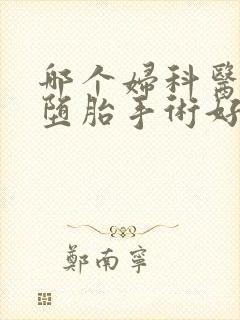 哪个婦科醫
堕胎手術好
鄭南寧